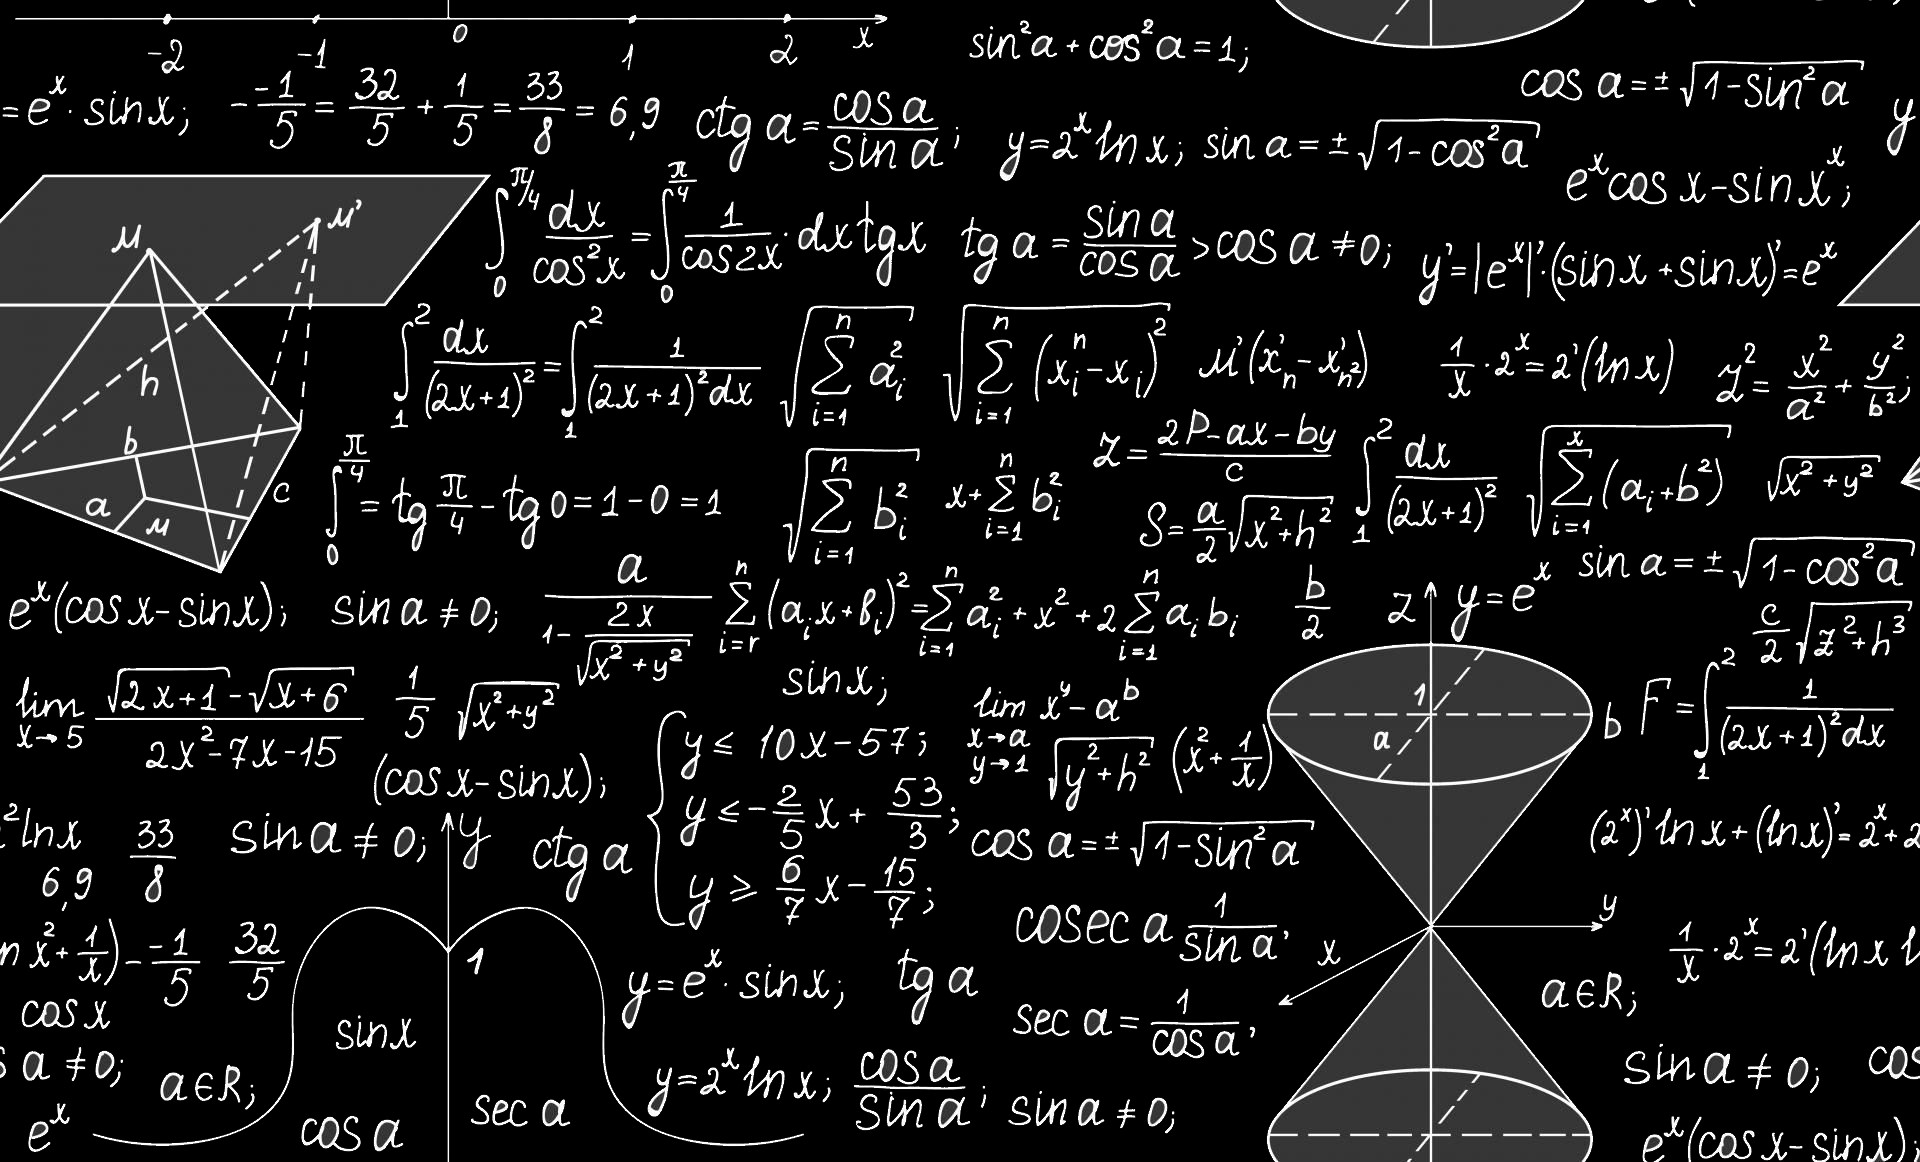 -2 -1 0 1 2 x
sin²a + cos²a = 1;
cos a = ± √(1-sin²a)
= eˣ · sin x; - -1/5 = 32/5 + 1/5 = 33/8 = 6,9
ctg a = cos a / sin a ;
y = 2ˣ ln x; sin a = ± √(1-cos²a)
y
eˣ cos x - sin xˣ;
M M'
∫₀^(π/4) dx/cos²x = ∫₀^(π/4) 1/cos2x · dx tgx
tg a = sin a / cos a > cos a ≠ 0;
y' = |eˣ|' · (sin x + sin x)' = eˣ
∫₁² dx/(2x+1)² = ∫₁² 1/(2x+1)²dx
√(∑_{i=1}^{n} a_i²)
√(∑_{i=1}^{n} (x_i^n - x_i)²)
M'(x'_n - x'_n²)
1/x · 2ˣ = 2'(ln x)
z² = x²/a² + y²/b²;
h
b
a
M
c
∫₀^(π/4) = tg π/4 - tg 0 = 1 - 0 = 1
√(∑_{i=1}^{n} b_i²)
x + ∑_{i=1}^{n} b_i²
z = (2P - ax - by)/c
S = a/2 √(x²+h²)
∫₁² dx/(2x+1)²
√(∑_{i=1}^{x} (a_i+b²))
√(x²+y²)
sin a = ± √(1-cos²a)
eˣ(cos x - sin x); sin a ≠ 0;
a/(1 - 2x/√(x²+y²))
∑_{i=r}^{n} (a_i x + b_i)² = ∑_{i=1}^{n} a_i² + x² + 2 ∑_{i=1}^{n} a_i b_i
b/2
z y = eˣ
c/2 √(z²+h³)
lim x→5 (√(2x+1) - √(x+6))/(2x²-7x-15)
1/5 √(x²+y²)
sin x;
lim x→a y→1 xʸ - aᵇ
√(y²+h²) (x²+1/x)
1
a
b F = ∫₁² 1/(2x+1)²dx
(cos x - sin x);
{ y ≤ 10x - 57;
y ≤ - 2/5 x + 53/3;
y ≥ 6/7 x - 15/7;
²ln x 33/8 sin a ≠ 0; y ctg a
6,9
cos a = ± √(1-sin²a)
(2ˣ)' ln x + (ln x)' = 2ˣ + 2
n x² + 1/x) - -1/5 32/5
1
cosec a 1/sin a,
x y
1/x · 2ˣ = 2'(ln x l
cos x
sin x
y = eˣ · sin x; tg a
sec a = 1/cos a,
a∈R;
s a ≠ 0; a∈R;
y = 2ˣ ln x; cos a / sin a ; sin a ≠ 0;
sin a ≠ 0; cos
eˣ
cos a
sec a
eˣ(cos x - sin x);